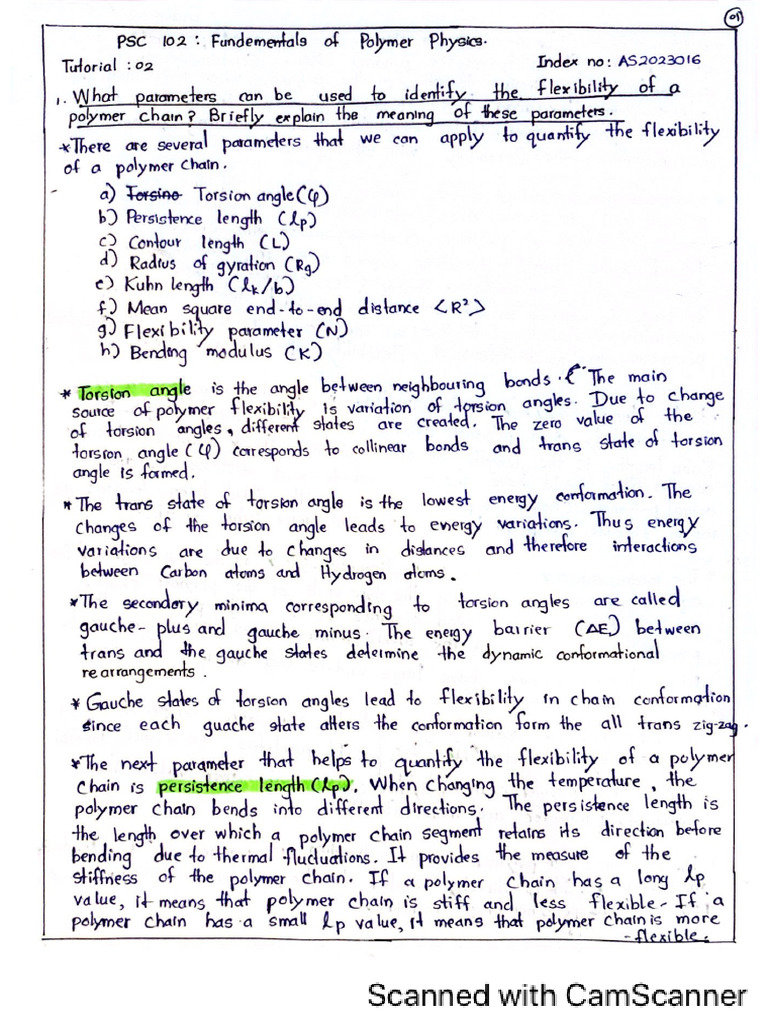 01
PSC 102 : Fundementals of Polymer Physics.
Tutorial : 02
Index no: AS2023016
1. What parameters can be used to identify the flexibility of a
polymer chain? Briefly explain the meaning of these parameters.
*There are several parameters that we can apply to quantify the flexibility
of a polymer chain.
a) Torsino Torsion angle (φ)
b) Persistence length (lp)
c) Contour length (L)
d) Radius of gyration (Rg)
e) Kuhn length (lk/b)
f) Mean square end-to-end distance <R²>
g) Flexibility parameter (N)
h) Bending modulus (K)
* Torsion angle is the angle between neighbouring bonds. The main
source of polymer flexibility is variation of torsion angles. Due to change
of torsion angles, different states are created. The zero value of the
torsion angle (φ) corresponds to collinear bonds and trans state of torsion
angle is formed.
* The trans state of torsion angle is the lowest energy conformation. The
changes of the torsion angle leads to energy variations. Thus energy
variations are due to changes in distances and therefore interactions
between Carbon atoms and Hydrogen atoms.
*The secondary minima corresponding to torsion angles are called
gauche-plus and gauche minus. The energy barrier (ΔE) between
trans and the gauche states determine the dynamic conformational
rearrangements.
* Gauche states of torsion angles lead to flexibility in chain conformation
since each guache state alters the conformation form the all trans zig-zag.
*The next parameter that helps to quantify the flexibility of a polymer
chain is persistence length (lp). When changing the temperature, the
polymer chain bends into different directions. The persistence length is
the length over which a polymer chain segment retains its direction before
bending due to thermal fluctuations. It provides the measure of the
stiffness of the polymer chain. If a polymer chain has a long lp
value, it means that polymer chain is stiff and less flexible. If a
polymer chain has a small lp value, it means that polymer chain is more
-flexible.
Scanned with CamScanner